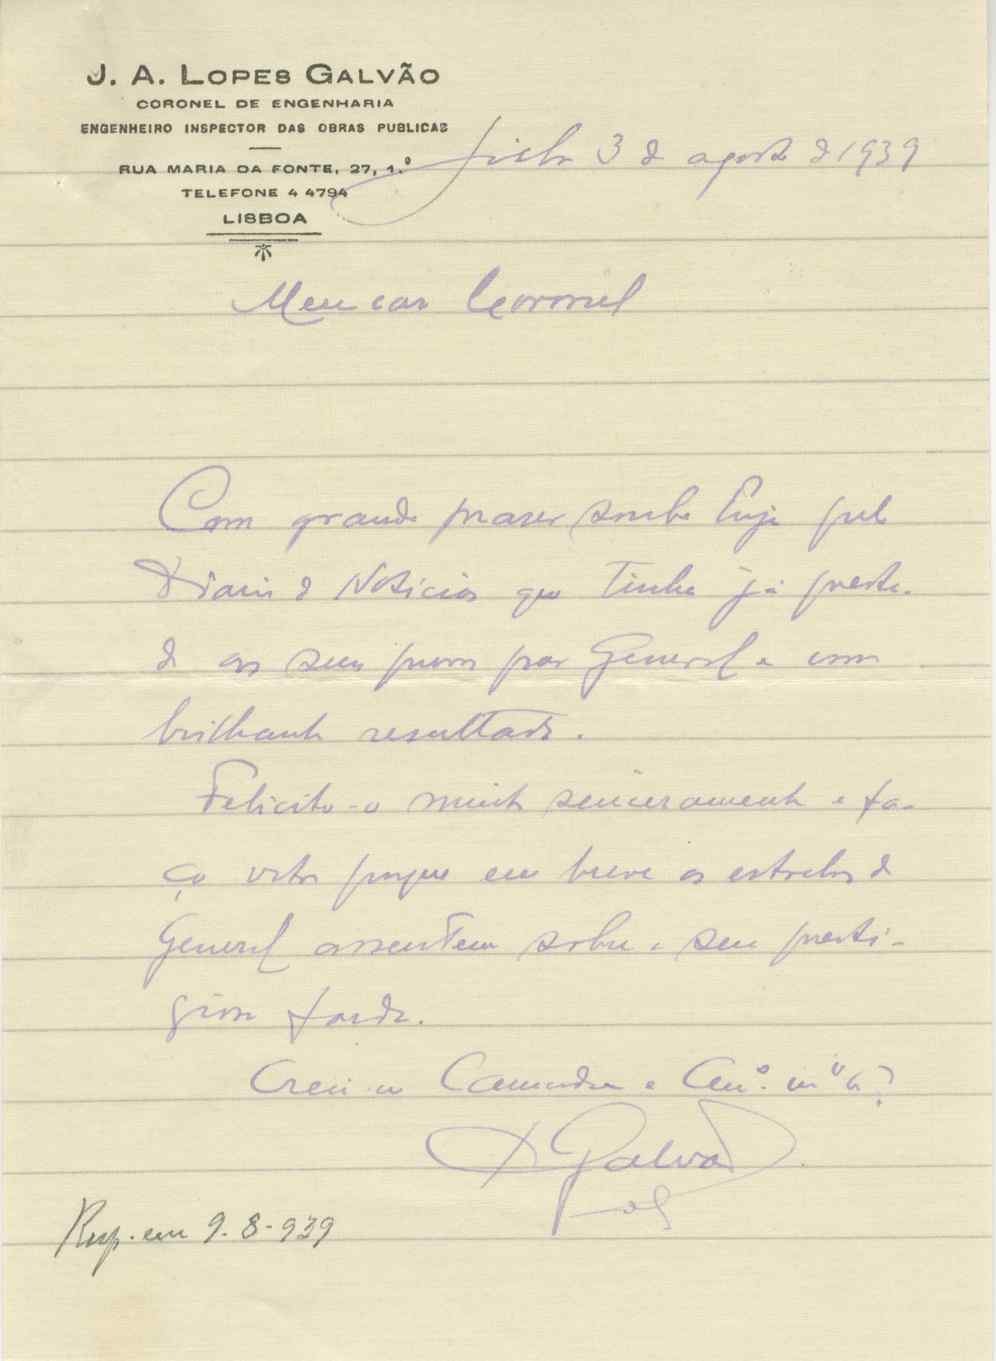 J. A. LOPES GALVÃO
CORONEL DE ENGENHARIA
ENGENHEIRO INSPECTOR DAS OBRAS PUBLICAS
RUA MARIA DA FONTE, 27, 1.º
TELEFONE 4 4794
LISBOA
3 de agosto de 1939
Meu caro Coronel
Com grande prazer soube hoje pelo
Diario de Noticias que tinha já presta-
do as suas provas para General e com
brilhante resultado.
Felicito-o muito sinceramente e fa-
ço votos porque em breve as estrelas de
General assentem sobre a sua presti-
giosa farda.
Creia-me Camarada e
Galvão
Resp. em 9-8-939